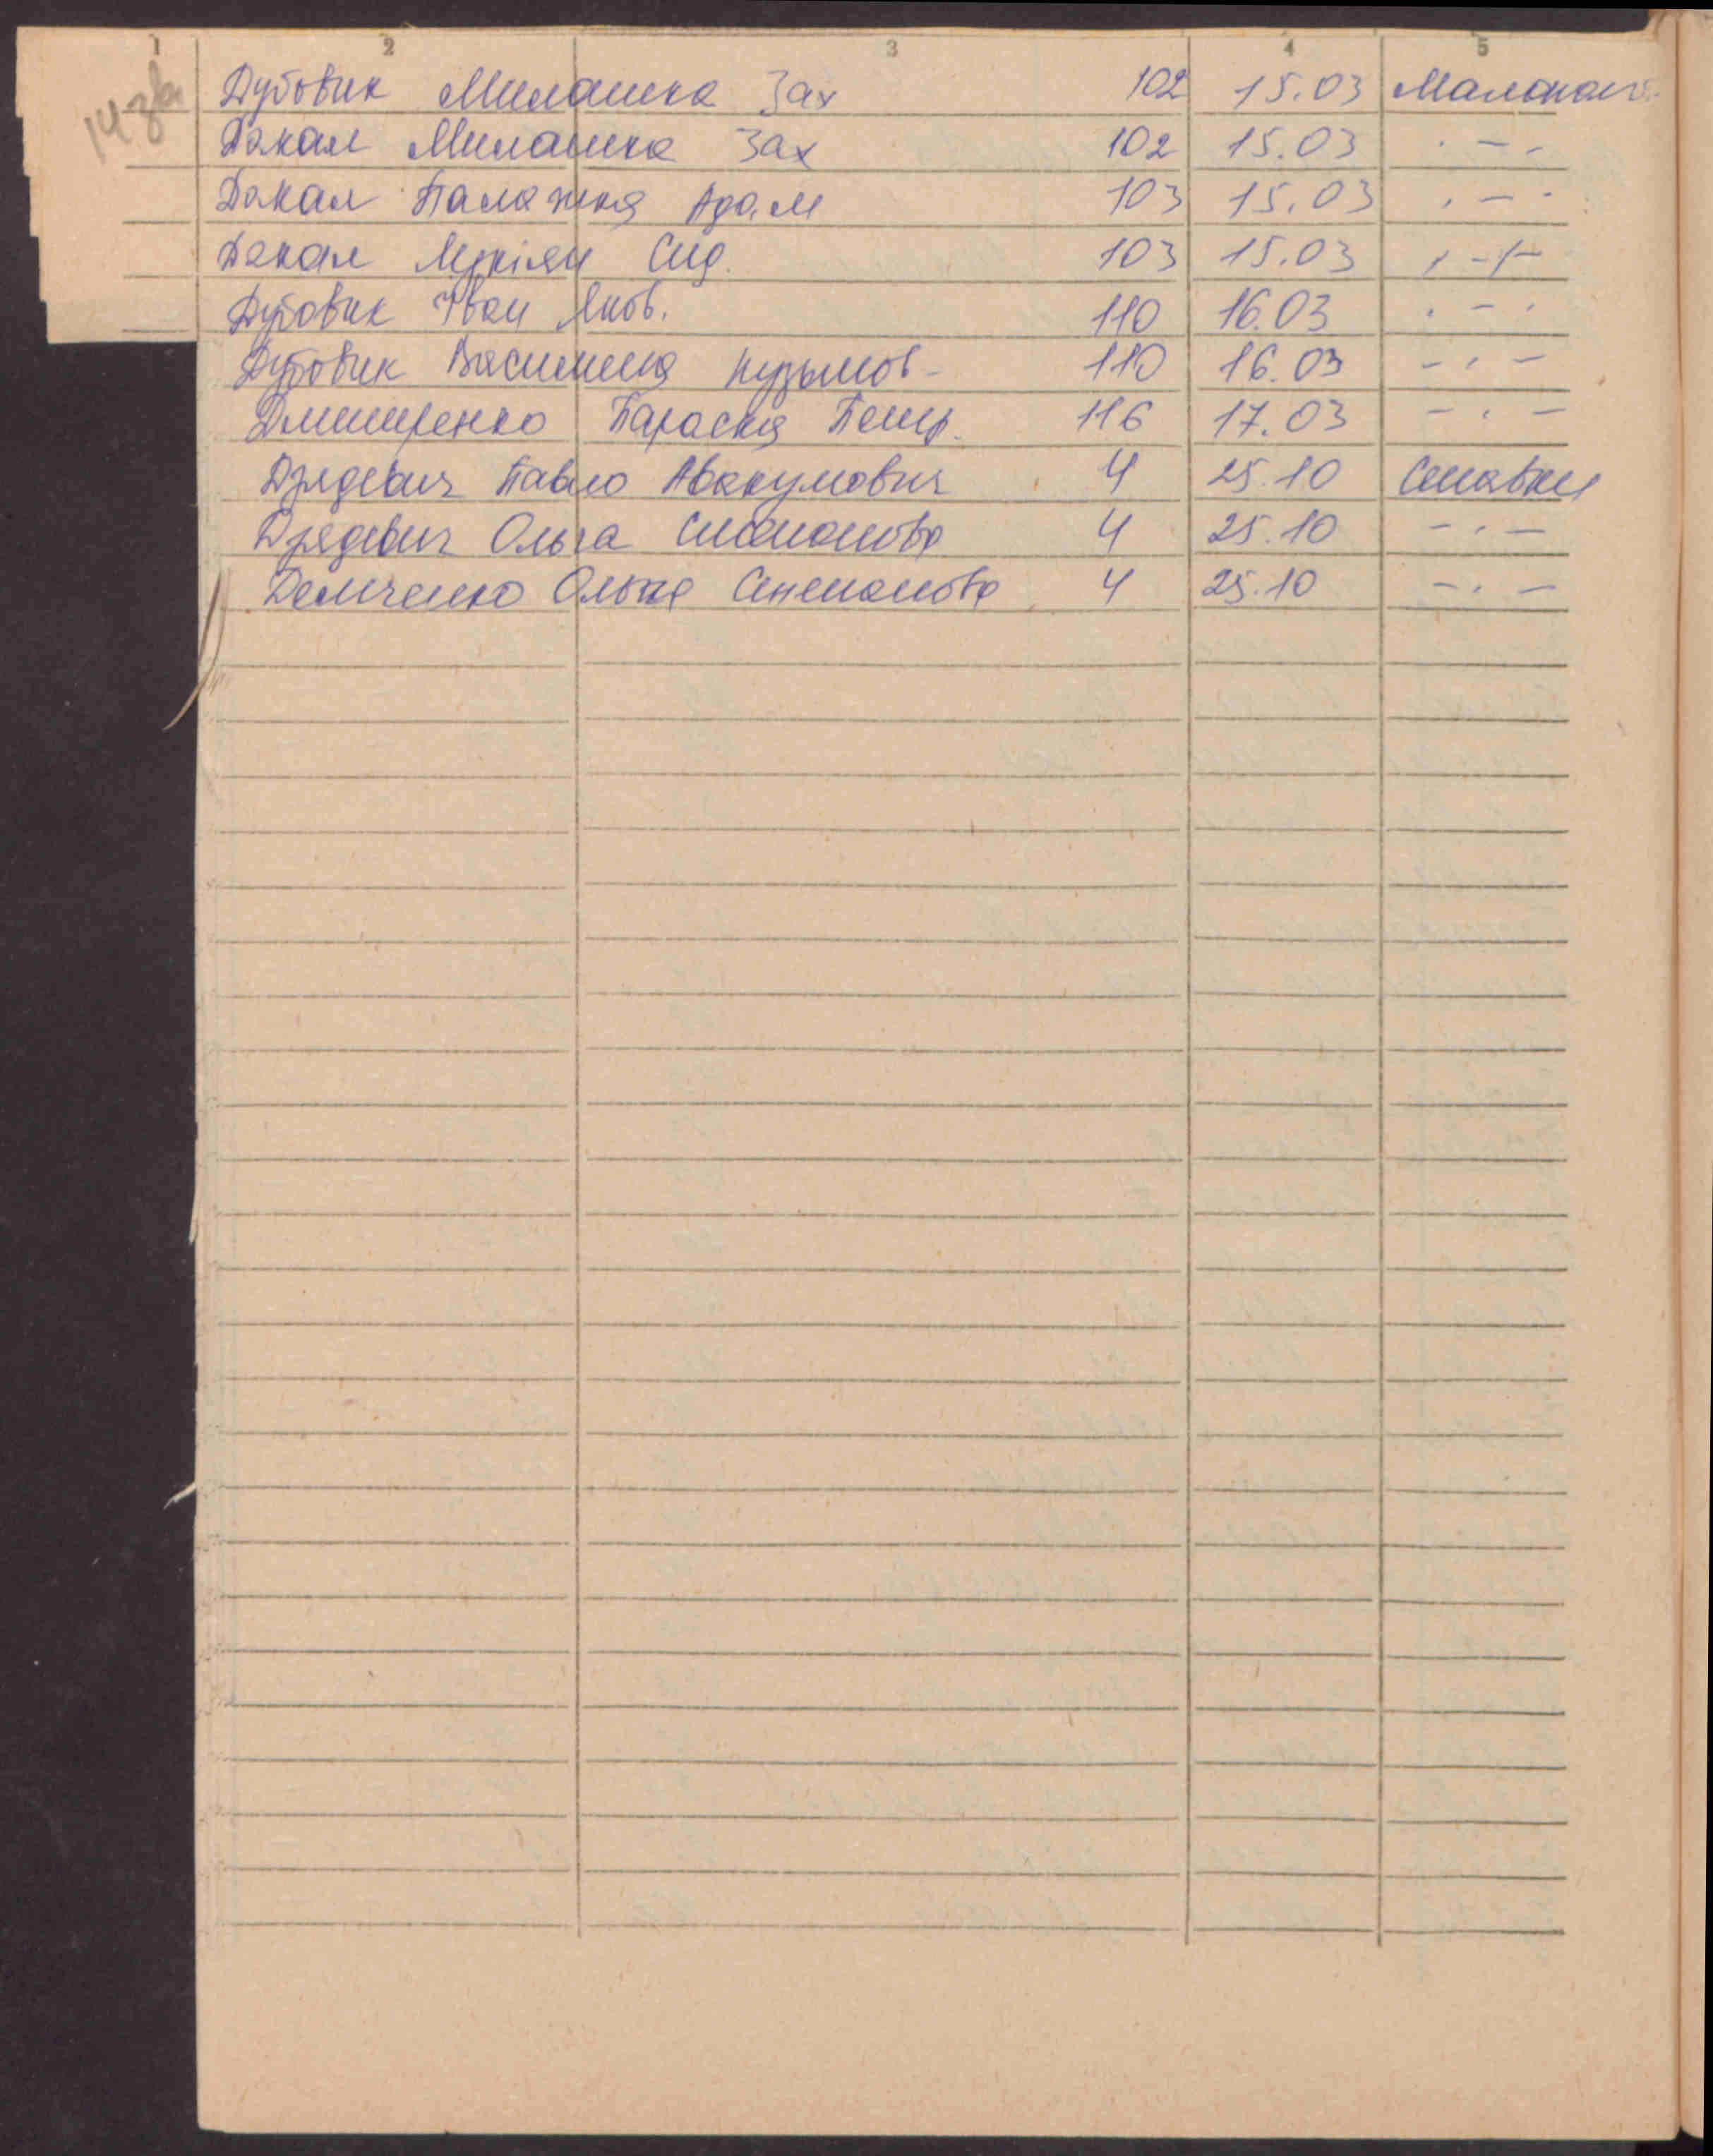 1 2 3 4 5
14зв
Дубовик Милашка Зах 102 15.03
Дакал Милашка Зах 102 15.03 · — -
Дакал Палажка Адам 103 15.03 · — -
Дакал Лукіян Сид. 103 15.03
Дубовик Іван Яков. 110 16.03 · — ·
Дубовик Василина Кузьмов- 110 16.03 — · —
Дмитренко Параска Петр. 116 17.03 — · —
Дзядевич Павло Авакумович 4 25.10 Ставки
Дзядевич Ольга Степанова 4 25.10 — · —
Демченко Ольга Степанова 4 25.10 — · —